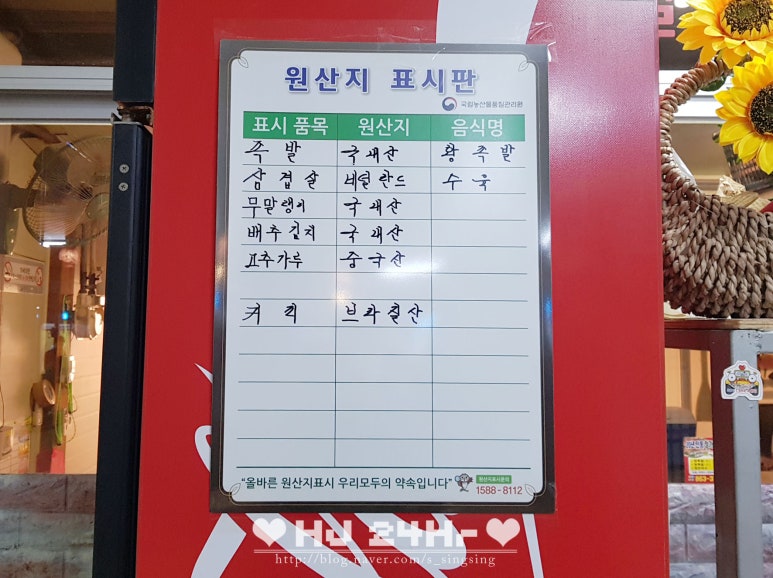 원산지 표시판
국립농산물품질관리원
표시 품목 원산지 음식명
족발 국내산 황족발
삼겹살 네덜란드 수육
무말랭이 국내산
배추김치 국내산
고추가루 중국산
커피 브라질산
"올바른 원산지표시 우리모두의 약속입니다"
원산지표시문의
1588-8112
HJ 24Hr
http://blog.naver.com/s_singsing